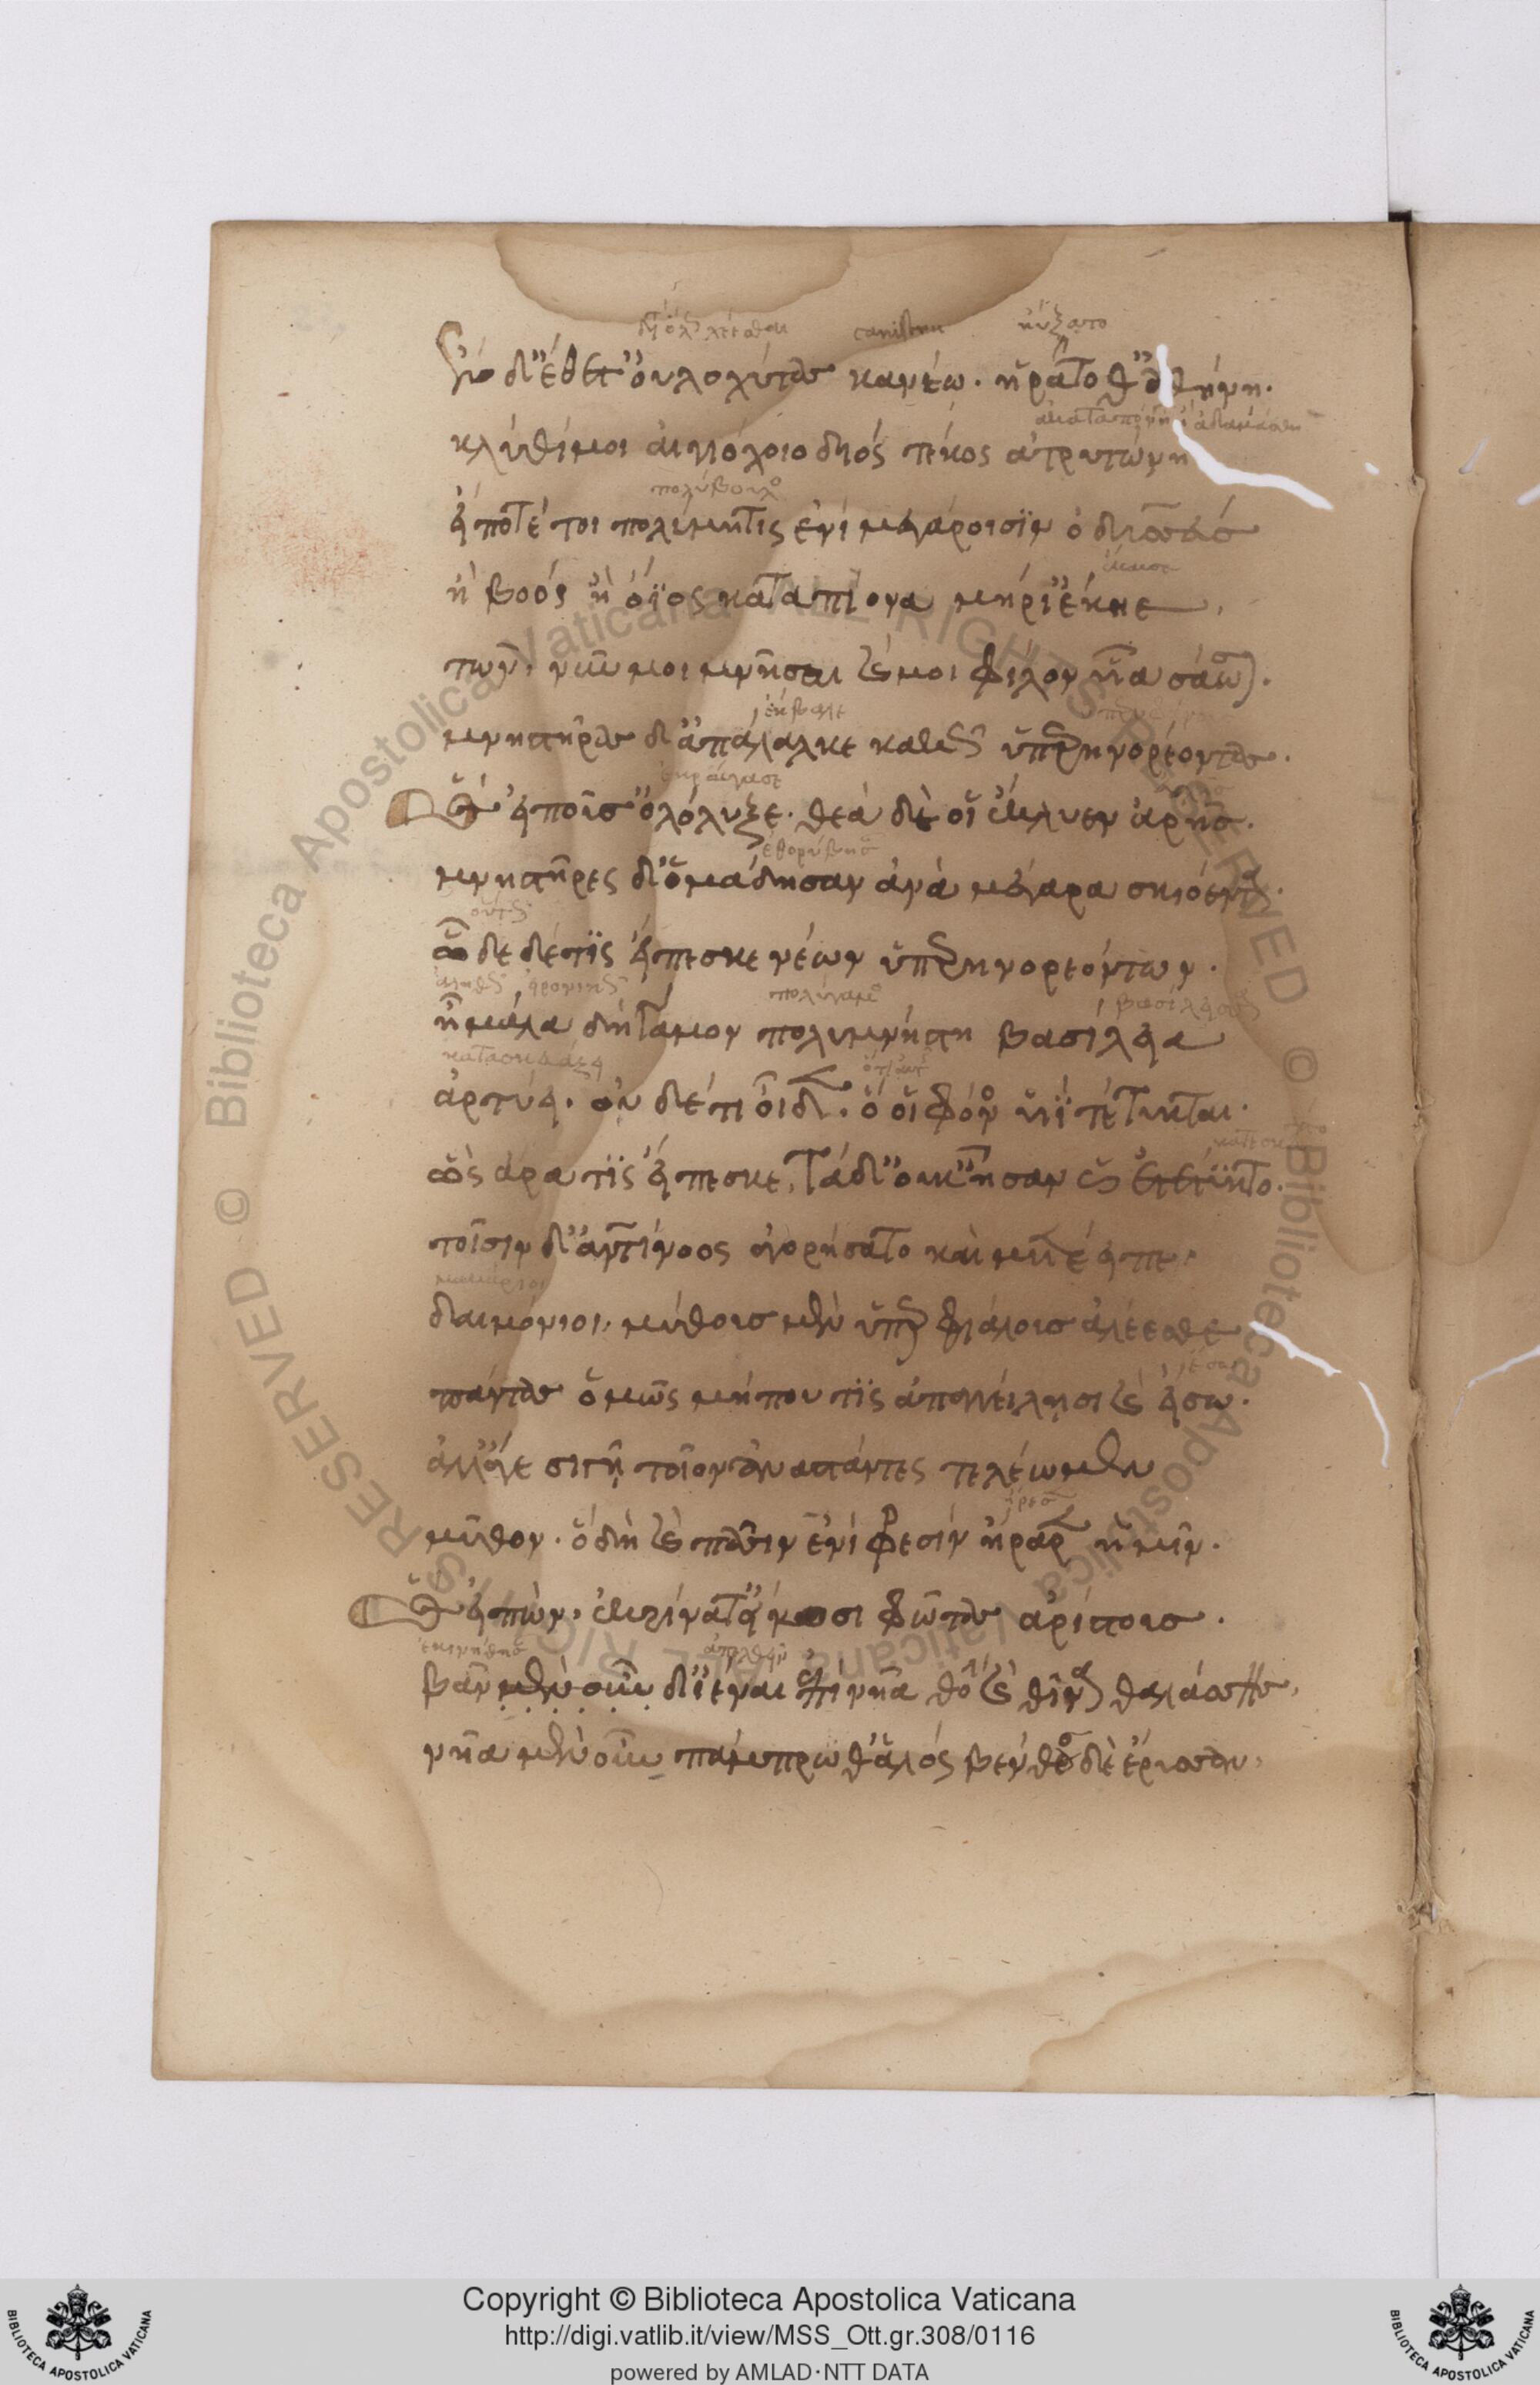 ἐν δ' ἔθετ' οὐλοχύτας κανέῳ. ἠρᾶτο δ' ἀθήνῃ.
κλῦθί μοι αἰγιόχοιο διός τέκος ἀτρυτώνη
εἴ ποτέ τοι πολύμητις ἐνὶ μεγάροισϊν ὀδυσσεύς
ἢ βοός ἢ ὄϊος κατὰ πίονα μηρί' ἔκηε
τῶν. νῦν μοι μνῆσαι καί μοι φίλον υἷα σάωσον.
μνηστῆρας δ' ἀπάλαλκε κακῶς ὑπερηνορέοντας.
ὣς εἰποῦσ' ὀλόλυξε. θεὰ δέ οἱ ἔκλυεν ἀρῆς.
μνηστῆρες δ' ὁμάδησαν ἀνὰ μέγαρα σκιόεντα.
ὧδε δέ τϊς εἴπεσκε νέων ὑπερηνορεόντων.
ἦ μάλα δὴ γάμον πολυμνήστη βασίλεια
ἀρτύει. οὐδέ τι οἶδεν. ὅ οἱ φόνος υἷϊ τέτυκται.
ὣς ἄρα τϊς εἴπεσκε, τὰ δ' οὐκ ἴσαν ὡς ἐτέτυκτο.
τοῖσιν δ' ἀντίνοος ἀγορήσατο καὶ μετέειπε.
δαιμόνιοι, μύθους μὲν ὑπερφιάλους ἀλέεσθε
πάντας ὁμῶς μήπου τϊς ἀπαγγείλῃσι καὶ εἴσω.
ἀλλ' ἄγε σιγῇ τοῖον ἀναστάντες τελέωμεν
μῦθον. ὃ δὴ καὶ πᾶσιν ἐνὶ φρεσίν ἤραρεν ἡμῖν.
ὣς εἰπών, ἐκρίνατ' ἐείκοσι φῶτας ἀρίστους.
βὰν μὲν οὖν δ' ἴεναι ἐπὶ νῆα θοὴν καὶ θῖνα θαλάσσης,
νῆα μὲν οὖν πάμπρωθ' ἁλός βένθοσδε ἔρυσσαν,
Copyright © Biblioteca Apostolica Vaticana
http://digi.vatlib.it/view/MSS_Ott.gr.308/0116
powered by AMLAD·NTT DATA